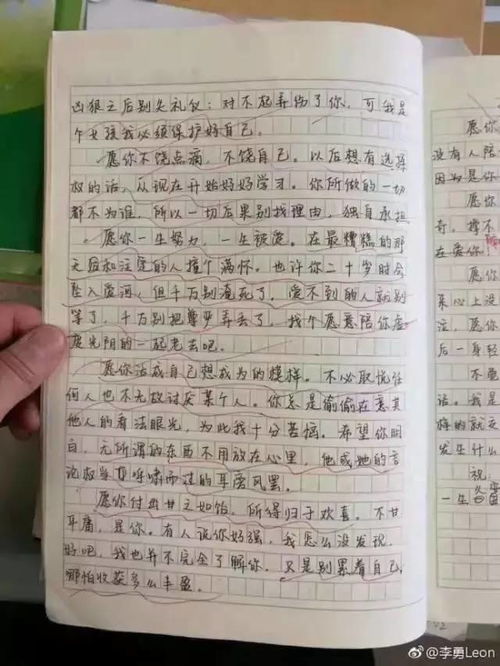 凶狠之后别失礼仪：对不起弄伤了你，可我是
个女孩我必须保护好自己。
愿你不饶点滴，不饶自己。以后想有选择
权的话，从现在开始好好学习。你所做的一切
都不为谁，所以一切后果别找理由，独自承担。
愿你一生努力，一生被爱。在最糟糕的那
天后和注定的人撞个满怀。也许你二十岁时会
坠入爱河，但千万别淹死了，爱不到的人就别
等了，千万别把尊严弄丢了，找个愿意陪你虚
度光阴的一起老去吧。
愿你活成自己想成为的模样。不必取悦任
何人也不无故讨厌某个人。你总是偷偷在意其
他人的看法眼光，为此我十分苦恼。希望你明
白，无所谓的东西不用放在心里，他或她的言
论权当耳呼啸而过的耳旁风罢。
愿你付出甘之如饴，所得归于欢喜。不甘
平庸，是你。有人说你好强，我怎么没发现，
好吧，我也并不完全了解你，只是别累着自己，
哪怕收获多么丰盈。
愿你
没有人陪
因为是你
愿你
奇，撑不
在爱你！
愿你
来心上没
注，愿你
后一身轻
不要
话。我是
样的就
发生什么
祝
一生
@李勇Leon